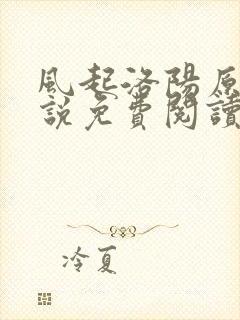 風起洛陽原
說免費閱讀
冷夏